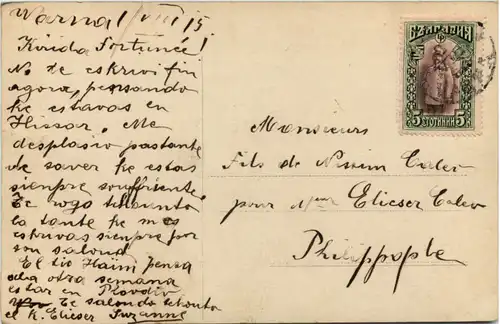 Varna 1/VIII 15
Kirida Fortunée!
No te eskrivi fin
agora, pensando
ke estavas en
Hissar. Me
desplasio bastante
de saver ke estas
siempre souffriente.
Te rogo
la tante ke mos
eskrivas siempre por
sou saloud.
El tio Haïm pensa
ala otra semana
estar en Plovdiv
Te saloudo
e K. Elieser Suzanne
БЪЛГАРИЯ
5 СТОТИНКИ 5
Monsieurs
Fils de Nissim Calev
pour Mr Elieser Calev
Philippople